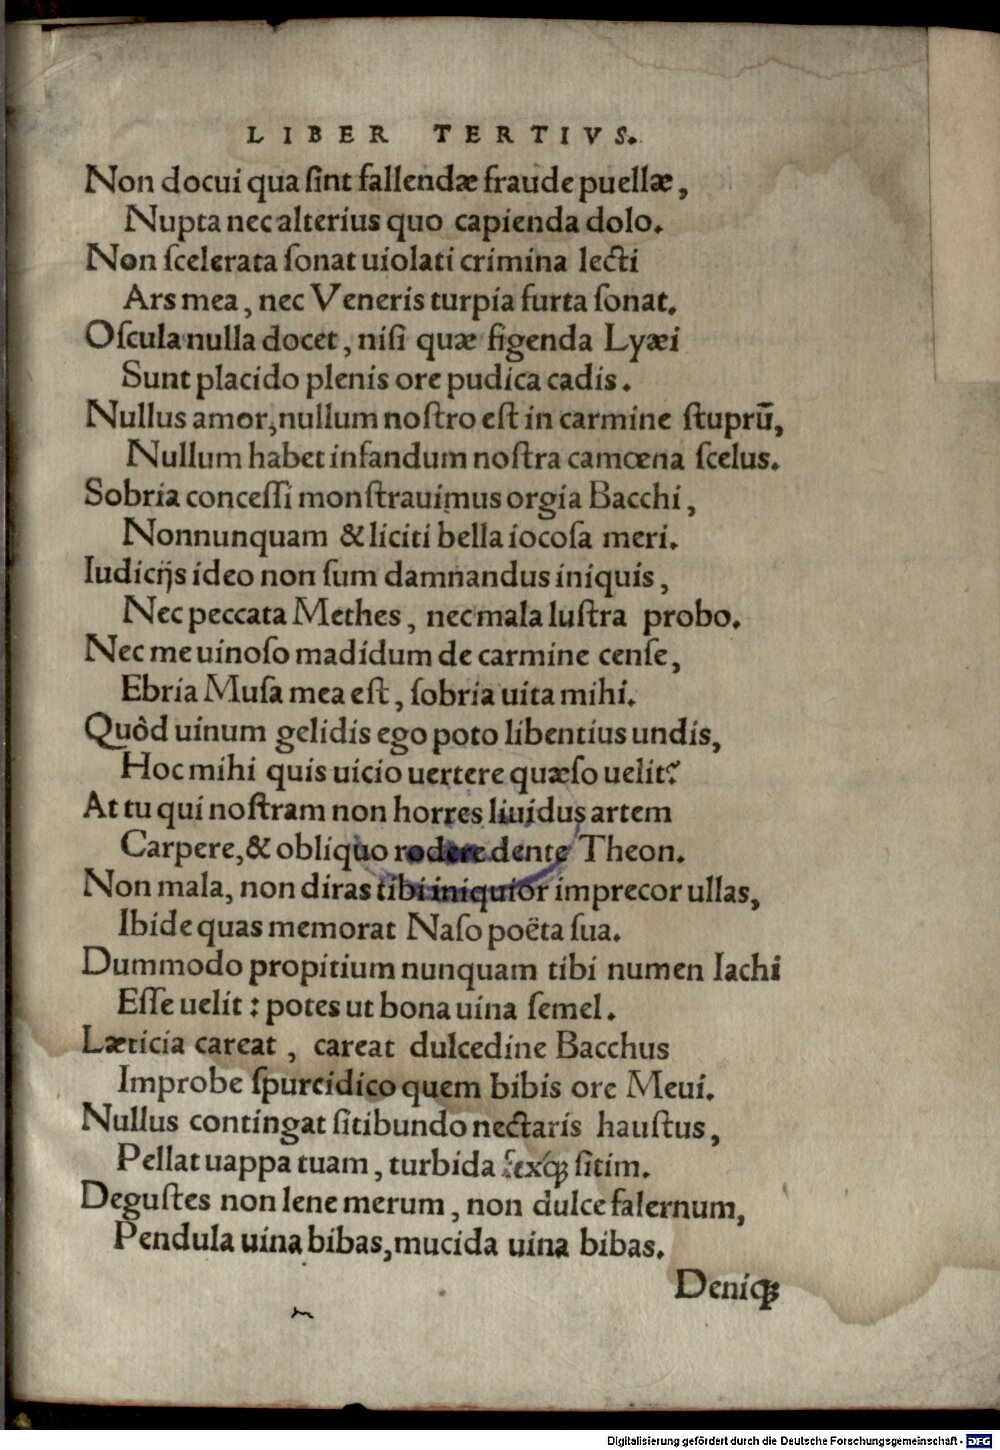 LIBER TERTIVS.
Non docui qua ſint fallendæ fraude puellæ,
Nupta nec alterius quo capienda dolo.
Non ſcelerata ſonat uiolati crimina lecti
Ars mea, nec Veneris turpia furta ſonat.
Oſcula nulla docet, niſi quæ figenda Lyæi
Sunt placido plenis ore pudica cadis.
Nullus amor, nullum noſtro eſt in carmine ſtuprū,
Nullum habet infandum noſtra camœna ſcelus.
Sobria conceſſi monſtrauimus orgia Bacchi,
Nonnunquam & liciti bella iocoſa meri.
Iudicijs ideo non ſum damnandus iniquis,
Nec peccata Methes, nec mala luſtra probo.
Nec me uinoſo madidum de carmine cenſe,
Ebria Muſa mea eſt, ſobria uita mihi.
Quôd uinum gelidis ego poto libentius undis,
Hoc mihi quis uicio uertere quæſo uelit?
At tu qui noſtram non horres liuidus artem
Carpere, & obliquo rodere dente Theon.
Non mala, non diras tibi iniquior imprecor ullas,
Ibide quas memorat Naſo poëta ſua.
Dummodo propitium nunquam tibi numen Iachi
Eſſe uelit: potes ut bona uina ſemel.
Læticia careat, careat dulcedine Bacchus
Improbe ſpurcidico quem bibis ore Meui.
Nullus contingat ſitibundo nectaris hauſtus,
Pellat uappa tuam, turbida fexq́ꝫ ſitim.
Deguſtes non lene merum, non dulce falernum,
Pendula uina bibas, mucida uina bibas.
Deniqꝫ
Digitalisierung gefördert durch die Deutsche Forschungsgemeinschaft - DFG